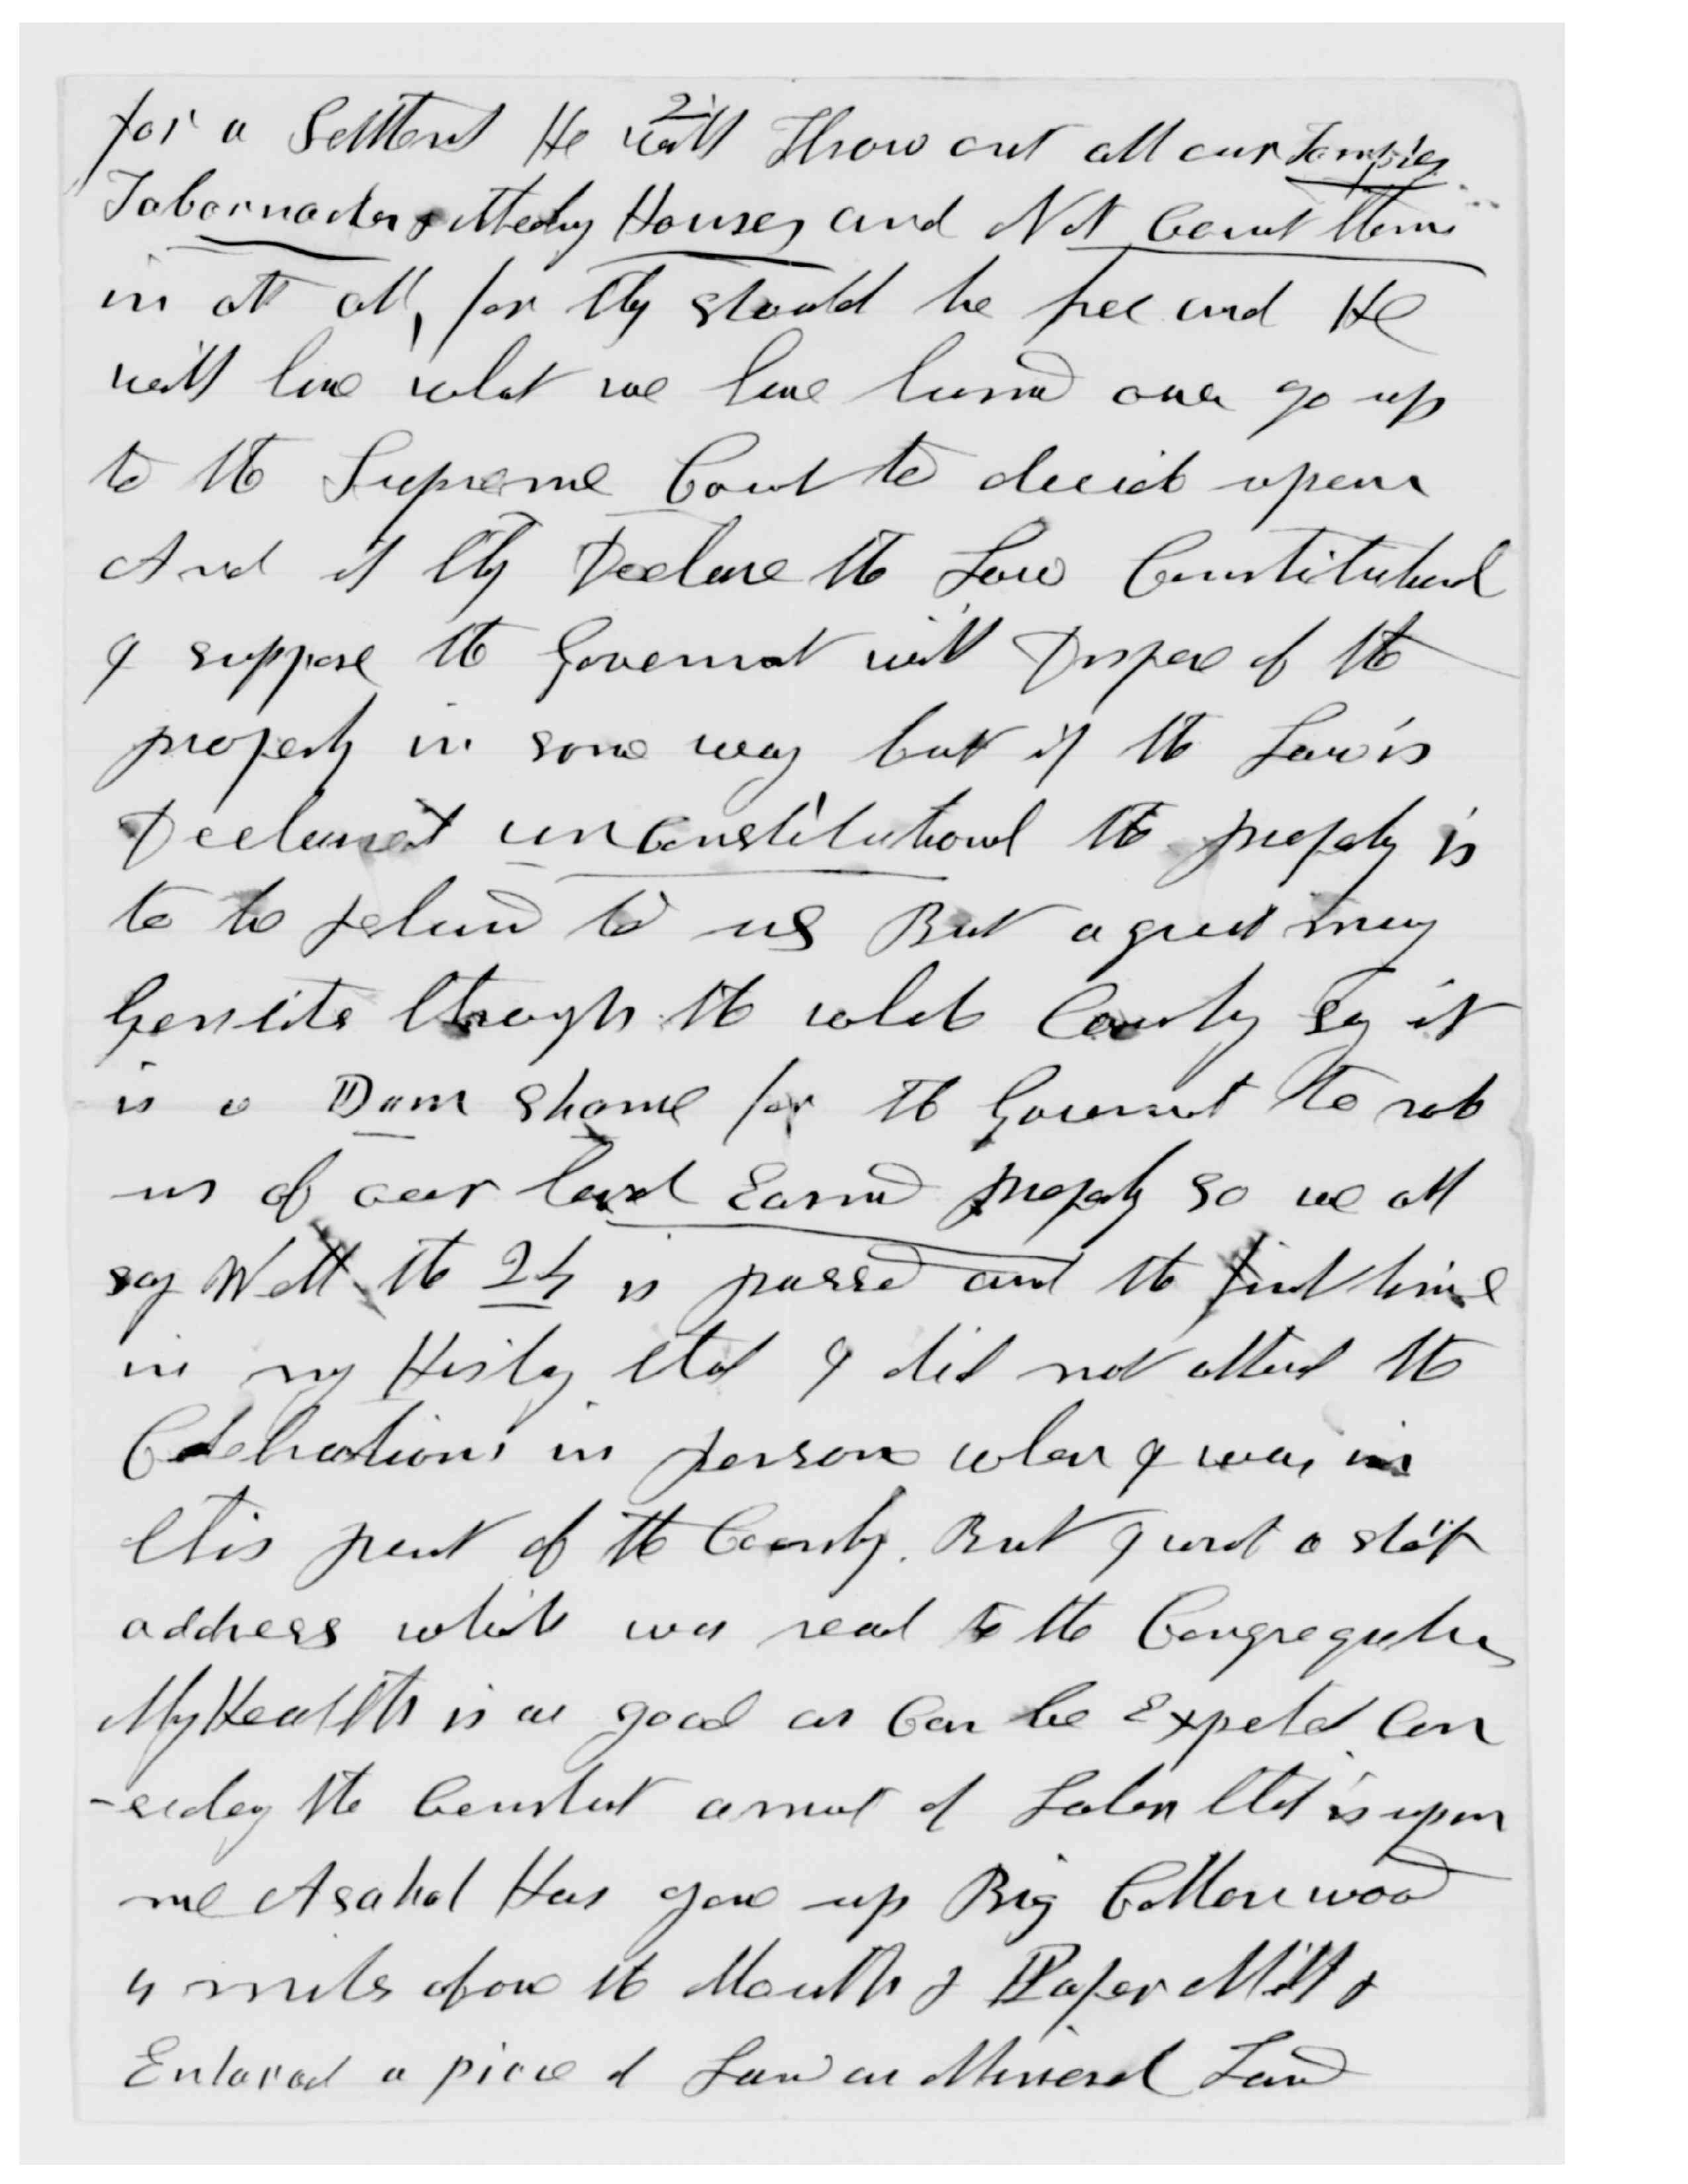 2
for a Settlement He will Throw out all our Temples
Tabernacles & Meeting Houses and Not Count them
in att all, for they should be free and He
will have what we have turned over go up
to the Supreme Court to decide upon
And if they Declare the Law Constitutional
I suppose the Government will Dispose of the
property in some way but if the Law is
Declared unConstitutional the property is
to be returned to us But a great many
Gentiles through the whole Country Say it
is a Dam shame for the Government to rob
us of our hard Earned property so we all
say Well the 24 is passed and the first time
in my History that I did not attend the
Celebrations in person when I was in
this part of the Country. But I wrote a short
address which was read to the Congregation
My Health is as good as Can be Expected Con
-sidering the Constant amount of Labor that is upon
me Asahel Has gone up Big Cottonwood
4 miles above the Mouth & Paper Mill &
Entered a piece of Land as Mineral Land